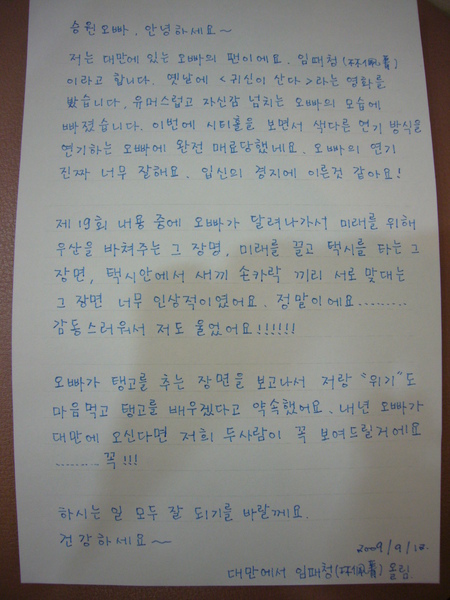 승원오빠, 안녕하세요~
저는 대만에 있는 오빠의 팬이에요. 임패청
이라고 합니다. 옛날에 <귀신이 산다>라는 영화를
봤습니다. 유머스럽고 자신감 넘치는 오빠의 모습에
빠졌습니다. 이번에 시티홀을 보면서 색다른 연기 방식을
연기하는 오빠에 완전 매료당했네요. 오빠의 연기
진짜 너무 잘해요. 입신의 경지에 이른것 같아요!
제 19회 내용 중에 오빠가 달려나가서 미래를 위해
우산을 바쳐주는 그 장명, 미래를 끌고 택시를 타는 그
장면, 택시안에서 새끼 손카락 끼리 서로 맞대는
그 장면 너무 인상적이였어요. 정말이에요.........
감동스러워서 저도 울었어요!!!!!!
오빠가 탱고를 추는 장면을 보고나서 저랑 "위기"도
마음먹고 탱고를 배우겠다고 약속했어요. 내년 오빠가
대만에 오신다면 저희 두사람이 꼭 보여드릴거에요
......... 꼭!!!
하시는 일 모두 잘 되기를 바랄께요.
건강하세요~
2009/9/
대만에서 임패청 올림.